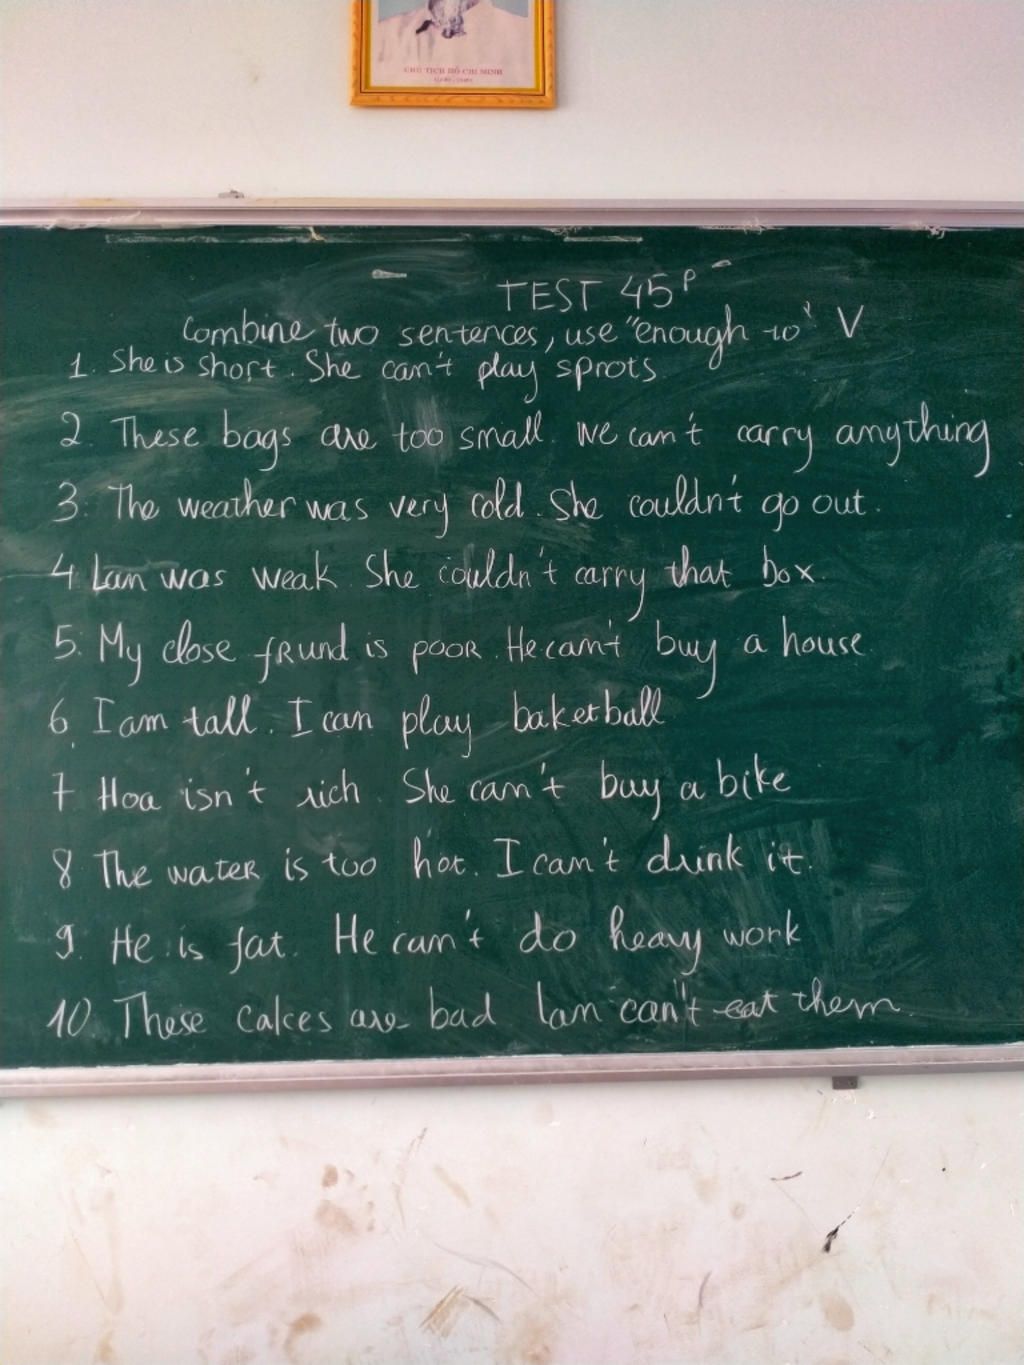 CHỦ TỊCH HỒ CHÍ MINH
TEST 45P
Combine two sentences, use "enough to" V
1. She is short. She can't play sprots
2. These bags are too small. We can't carry anything
3. The weather was very cold. She couldn't go out.
4 Lan was weak. She couldn't carry that box.
5. My close friend is poor. He can't buy a house.
6. I am tall. I can play baketball
7 Hoa isn't rich. She can't buy a bike
8 The water is too hot. I can't drink it.
9. He is fat. He can't do heavy work
10. These cakes are bad Lan can't eat them.